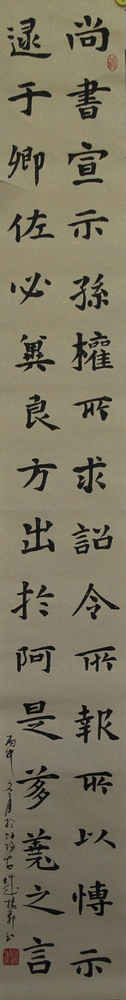 尚書宣示孫權所求詔令所報所以博示
逮于卿佐必冀良方出於阿是芻蕘之言
丙申